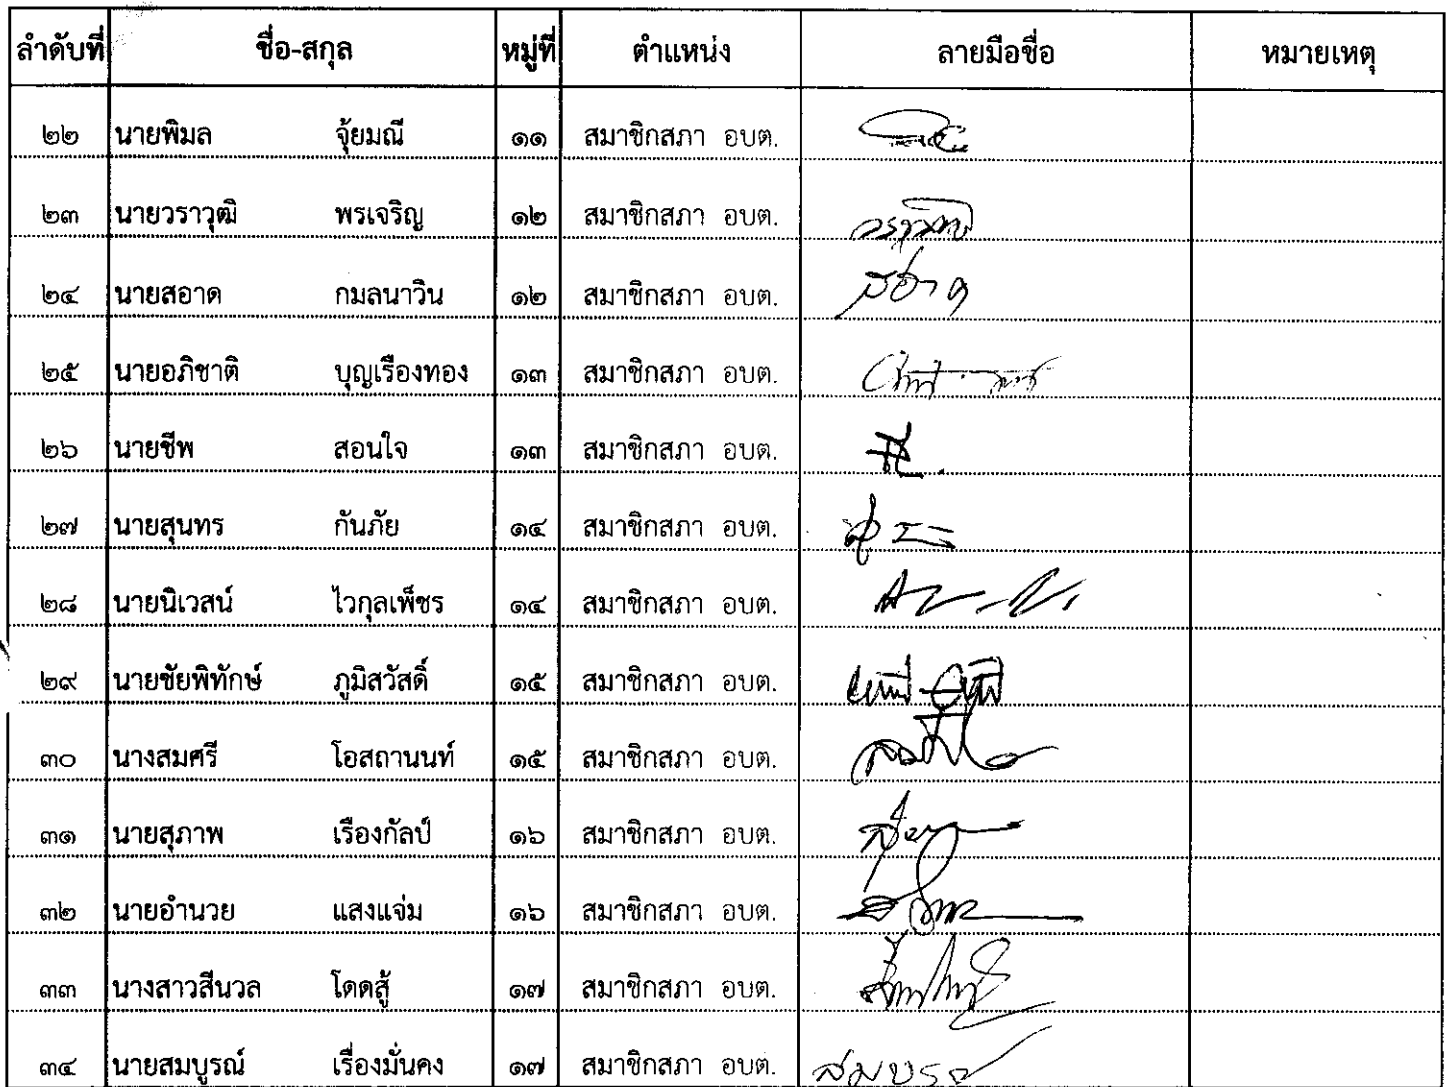 ลำดับที่ ชื่อ-สกุล หมู่ที่ ตำแหน่ง ลายมือชื่อ หมายเหตุ
๒๒ นายพิมล จุ้ยมณี ๑๑ สมาชิกสภา อบต.
๒๓ นายวราวุฒิ พรเจริญ ๑๒ สมาชิกสภา อบต.
๒๔ นายสอาด กมลนาวิน ๑๒ สมาชิกสภา อบต. สอาด
๒๕ นายอภิชาติ บุญเรืองทอง ๑๓ สมาชิกสภา อบต.
๒๖ นายชีพ สอนใจ ๑๓ สมาชิกสภา อบต.
๒๗ นายสุนทร กันภัย ๑๔ สมาชิกสภา อบต.
๒๘ นายนิเวสน์ ไวกุลเพ็ชร ๑๔ สมาชิกสภา อบต.
๒๙ นายชัยพิทักษ์ ภูมิสวัสดิ์ ๑๕ สมาชิกสภา อบต.
๓๐ นางสมศรี โอสถานนท์ ๑๕ สมาชิกสภา อบต.
๓๑ นายสุภาพ เรืองกัลป์ ๑๖ สมาชิกสภา อบต.
๓๒ นายอำนวย แสงแจ่ม ๑๖ สมาชิกสภา อบต.
๓๓ นางสาวสีนวล โดดสู้ ๑๗ สมาชิกสภา อบต.
๓๔ นายสมบูรณ์ เรื่องมั่นคง ๑๗ สมาชิกสภา อบต.